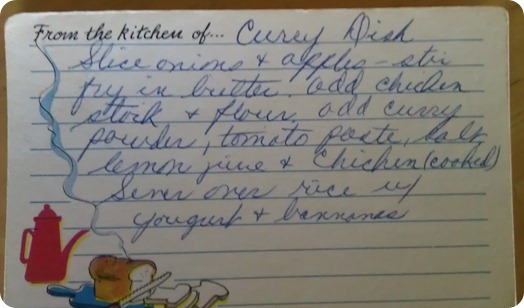 From the kitchen of... Curry Dish
Slice onions & apples - stir
fry in butter. Add chicken
stock & flour, add curry
powder, tomato paste, salt
lemon juice & Chicken (cooked)
Server over rice w/
yougurt & bannanas